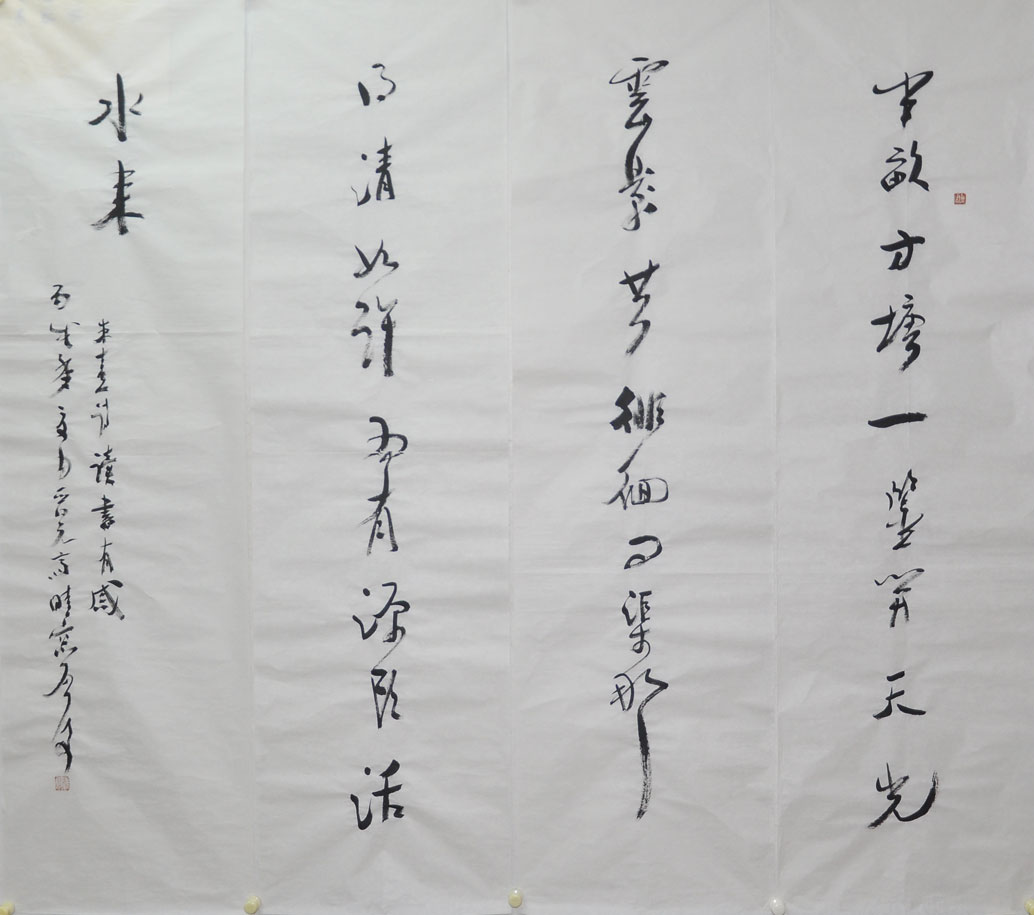 半畝方塘一鑒開天光
雲影共徘徊問渠那
得清如許為有源頭活
水來
朱熹詩讀書有感
丙戌 晴窗